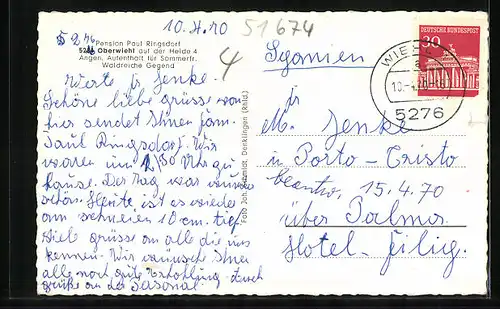 10.4.70
51674
5276
Pension Paul Ringsdorf
Oberwiehl auf der Helde 4
Angen. Aufenthalt für Sommerfr.
Waldreiche Gegend
4
Werte Fr Jenke.
Schöne liebe grüsse von
hier sendet Ihnen fam.
Paul Ringsdorf. Wir
waren um Uhr zu
hause. Der Tag war
schön. Heute ist es wieder
am schneien 10 cm. tief.
Viel grüsse an alle die uns
kennen. Wir wünsche Ihnen
alle noch gute Erhohlung
grüße an das Pasonal.
Foto Joh. Schmidt, Denklingen (Rhld.)
Spanien
Fr
M. Jenke
in Porto-Cristo
beantw. 15.4.70
über Palma
Hotel-
DEUTSCHE BUNDESPOST
30
WIEHL
a
5276